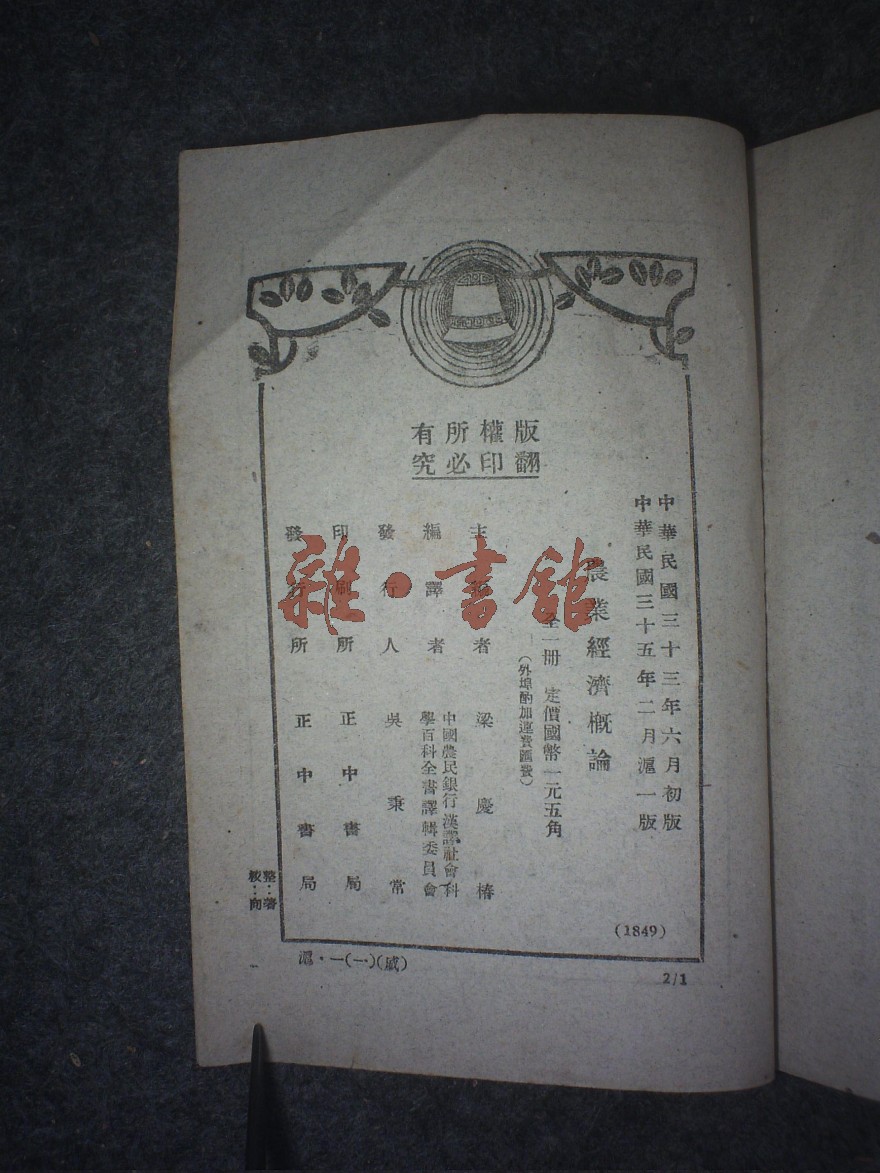 版權所有
翻印必究
中華民國三十三年六月初版
中華民國三十五年二月滬一版
農業經濟概論
全一冊 定價國幣一元五角
（外埠酌加運費匯費）
主編者 梁慶椿
編譯者 中國農民銀行漢譯社會科
學百科全書譯輯委員會
發行人 吳秉常
印刷所 正中書局
發行所 正中書局
(1849)
整：著
校：向
滬·一(一·)(處)
2/1
雜·書館